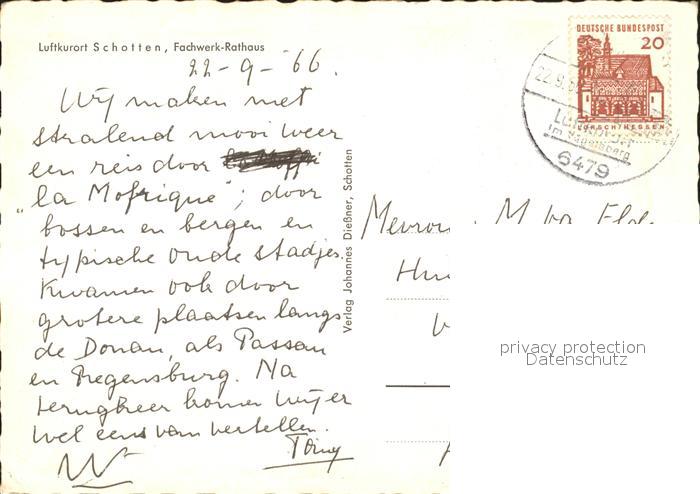 Luftkurort Schotten, Fachwerk-Rathaus
22-9-'66.
Wij maken met
stralend mooi weer
een reis door
"la Mofrique"; door
bossen en bergen en
typische oude stadjes.
Kwamen ook door
grotere plaatsen langs
de Donau, als Passau
en Regensburg. Na
terugkeer komen wij er
wel eens van vertellen.
Tony
Verlag Johannes Dießner, Schotten
DEUTSCHE BUNDESPOST
20
LORSCH/HESSEN
22.9.
im Vogelsberg
6479
privacy protection
Datenschutz